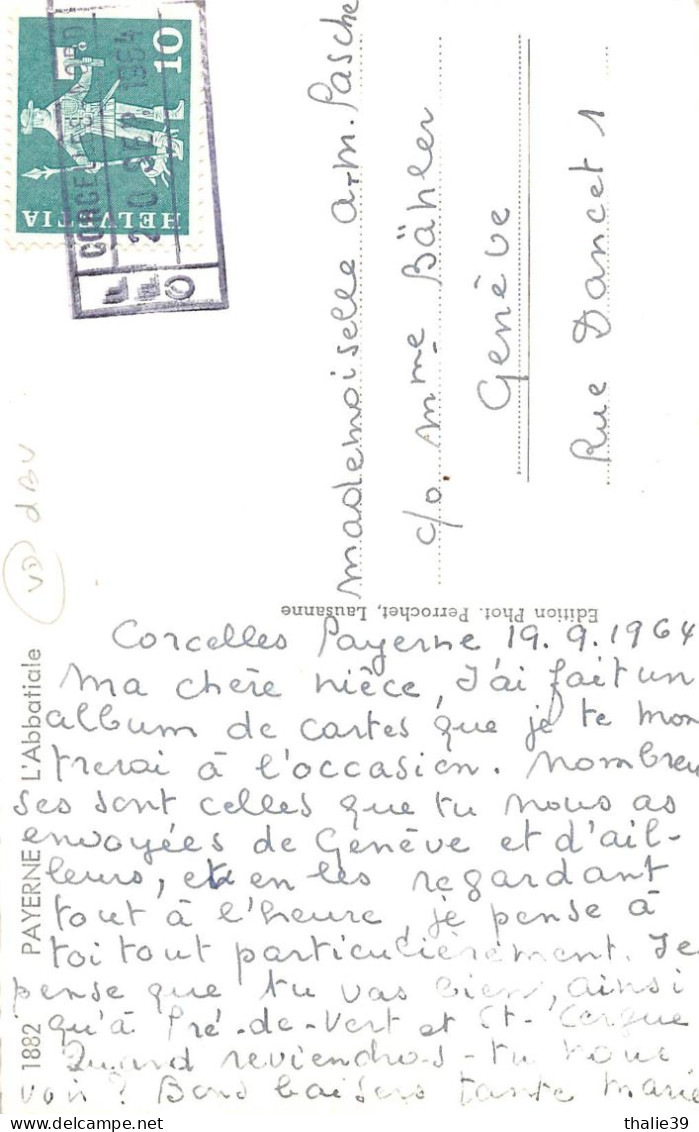 HELVETIA
10
CORCELLES
20 SEP 1964
OFF
mademoiselle a-m. Pasche
c/o. mme Bähler
Genève
Rue Dancet 1
VD dBV
Edition Phot. Perrochet, Lausanne
1882 PAYERNE L'Abbatiale
Corcelles Payerne 19. 9. 1964
Ma chère nièce, J'ai fait un
album de cartes que je te mon
trerai à l'occasion. Nombreu
ses sont celles que tu nous as
envoyées de Genève et d'ail-
leurs, et en les regardant
tout à l'heure, je pense à
toi tout particulièrement. Je
pense que tu vas bien, ainsi
qu'à Pré-de-Vert et St-Cergue
Quand reviendras-tu nous
voir ? Bons baisers tante Marie
thalie39